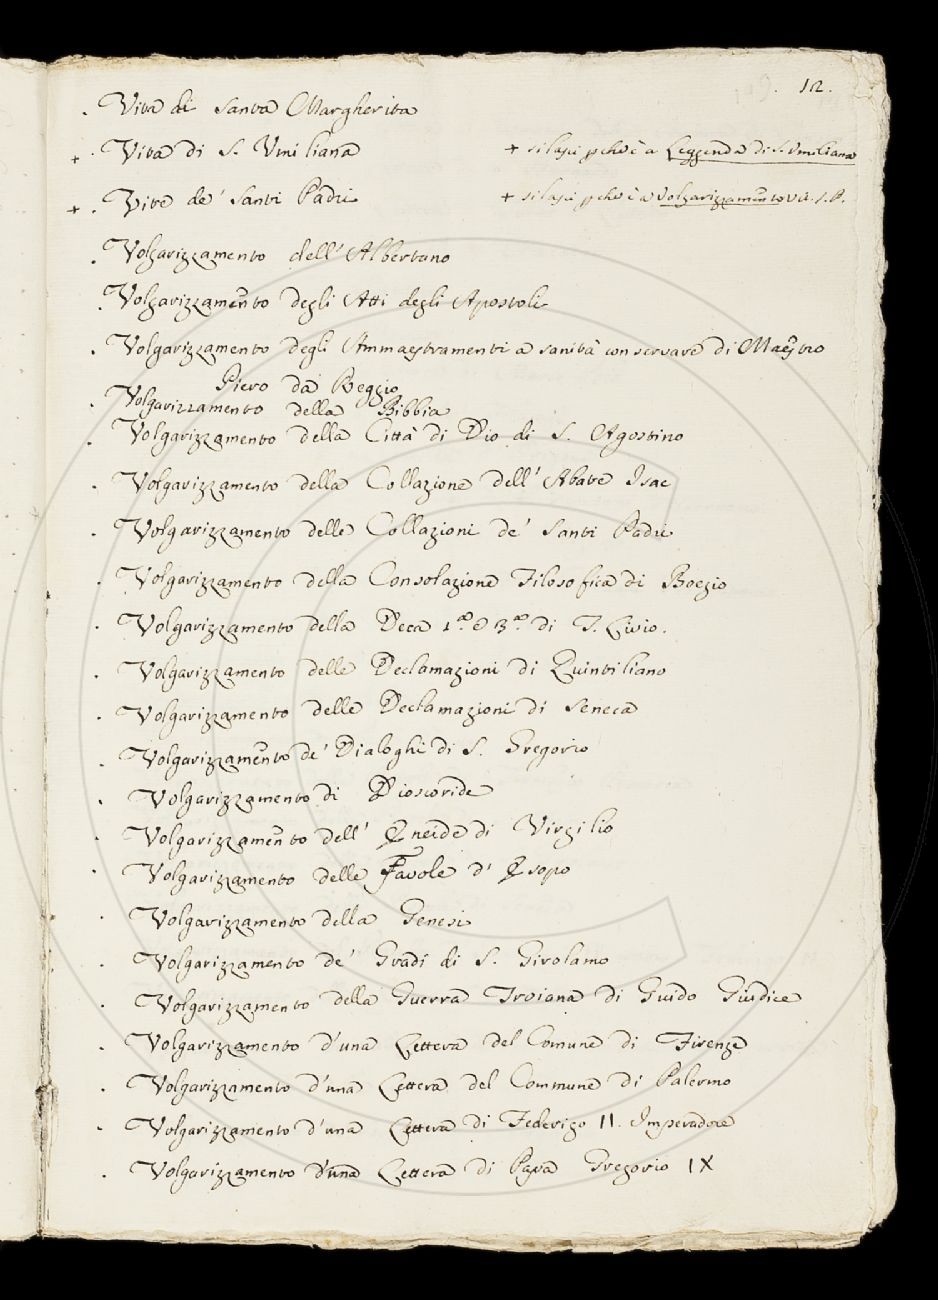 12.
. Vita di Santa Margherita
+ . Vita di S. Umiliana + si lasci pchè è a Leggenda di S. Umiliana
+ . Vite de' Santi Padri + si lasci pchè è a Volgarizzam̃to Vit. S. P.
. Volgarizzamento dell' Albertano
. Volgarizzam̃to degli Atti degli Apostoli
. Volgarizzamento degli Ammaestramenti a sanità conservare di Maẽstro
Piero da Reggio
. Volgarizzamento della Bibbia
. Volgarizzamento della Città di Dio di S. Agostino
. Volgarizzamento della Collazione dell' Abate Isac
. Volgarizzamento delle Collazioni de' Santi Padri
. Volgarizzamento della Consolazione Filosofica di Boezio
. Volgarizzamento della Deca 1ª e 3ª di T. Livio.
. Volgarizzamento delle Declamazioni di Quintiliano
. Volgarizzamento delle Declamazioni di Seneca
. Volgarizzam̃to de' Dialoghi di S. Gregorio
. Volgarizzamento di Dioscoride
. Volgarizzam̃to dell' Eneide di Virgilio
. Volgarizzamento delle Favole d' Esopo
. Volgarizzamento della Genesi
. Volgarizzamento de' Gradi di S. Girolamo
. Volgarizzamento della Guerra Troiana di Guido Giudice
. Volgarizzamento d'una Lettera del Comune di Firenze
. Volgarizzamento d'una Lettera del Commune di Palermo
. Volgarizzamento d'una Lettera di Federigo II. Imperadore
. Volgarizzamento d'una Lettera di Papa Gregorio IX